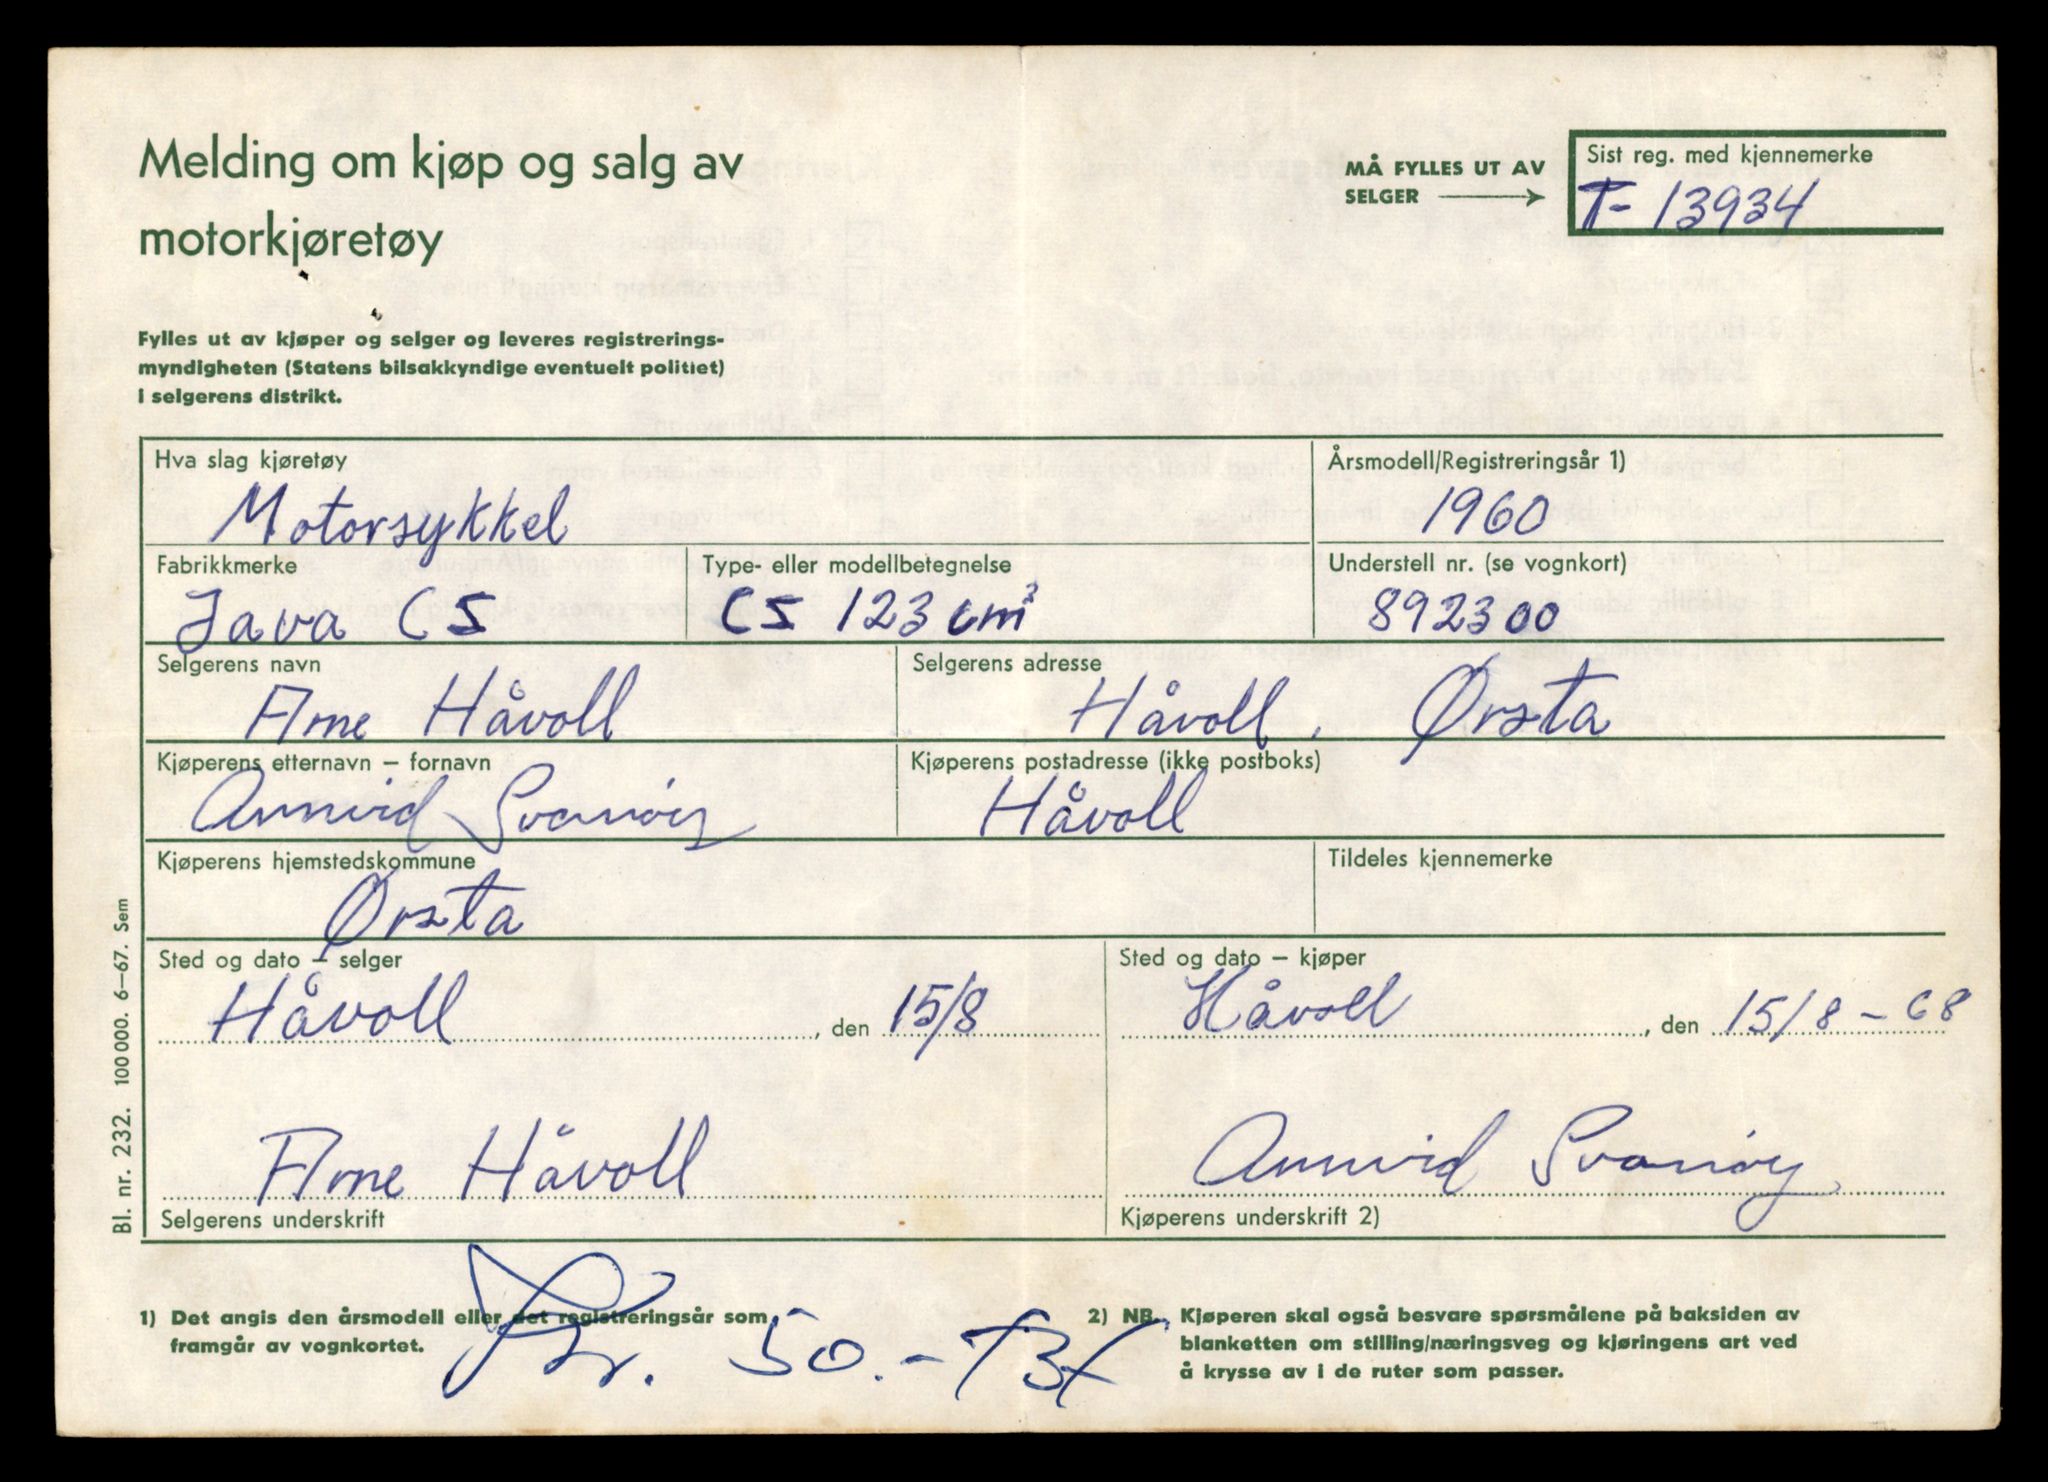 Melding om kjøp og salg av
motorkjøretøy
MÅ FYLLES UT AV
SELGER
Sist reg. med kjennemerke
T- 13934
Fylles ut av kjøper og selger og leveres registrerings-
myndigheten (Statens bilsakkyndige eventuelt politiet)
i selgerens distrikt.
Hva slag kjøretøy
Motorsykkel
Årsmodell/Registreringsår 1)
1960
Fabrikkmerke
Java C5
Type- eller modellbetegnelse
C5 123 cm³
Understell nr. (se vognkort)
892300
Selgerens navn
Arne Håvoll
Selgerens adresse
Håvoll, Ørsta
Kjøperens etternavn – fornavn
Annvid Svanøy
Kjøperens postadresse (ikke postboks)
Håvoll
Kjøperens hjemstedskommune
Ørsta
Tildeles kjennemerke
Sted og dato – selger
Håvoll, den 15/8
Sted og dato – kjøper
Håvoll, den 15/8-68
Arne Håvoll
Selgerens underskrift
Annvid Svanøy
Kjøperens underskrift 2)
1) Det angis den årsmodell eller det registreringsår som
framgår av vognkortet.
kr. 50.-
2) NB. Kjøperen skal også besvare spørsmålene på baksiden av
blanketten om stilling/næringsveg og kjøringens art ved
å krysse av i de ruter som passer.
Bl. nr. 232. 100000. 6–67. Sem